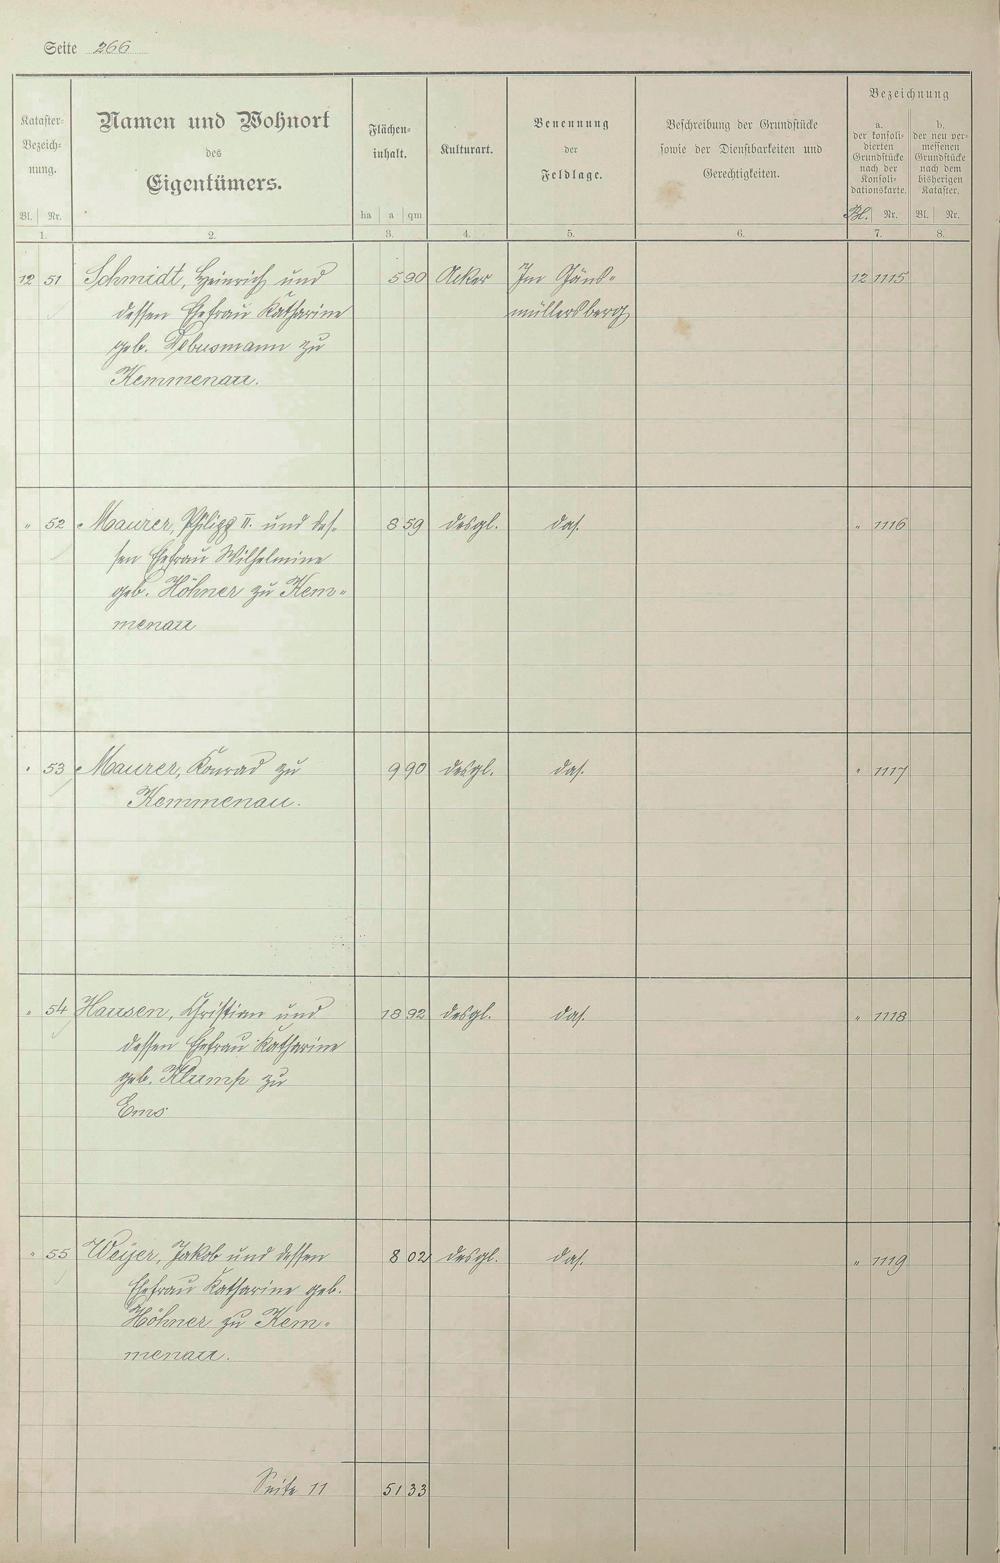 Seite 266
Kataster-Bezeich-nung.
Namen und Wohnort des Eigentümers.
Flächen-inhalt.
Kulturart.
Benennung der Feldlage.
Beschreibung der Grundstücke sowie der Dienstbarkeiten und Gerechtigkeiten.
Bezeichnung
a. der konsoli-dierten Grundstücke nach der Konsoli-dationskarte.
b. der neu ver-messenen Grundstücke nach dem bisherigen Kataster.
Bl. Nr. ha a qm Bl. Nr. Bl. Nr.
1. 2. 3. 4. 5. 6. 7. 8.
12 51 Schmidt, Heinrich und 5 90 Acker Im Gäns- 12 1115
dessen Ehefrau Katharine müllersberg
geb. Debusmann zu
Kemmenau.
" 52 Maurer, Philipp II. und des- 8 59 desgl. das. " 1116
sen Ehefrau Wilhelmine
geb. Höhner zu Kem-
menau
" 53 Maurer, Konrad zu 9 90 desgl. das. " 1117
Kemmenau.
" 54 Hausen, Christian und 18 92 desgl. das. " 1118
dessen Ehefrau Katharine
geb. Klump zu
Ems
" 55 Weyer, Jakob und dessen 8 02 desgl. das. " 1119
Ehefrau Katharine geb.
Höhner zu Kem-
menau.
Seite 11 51 33